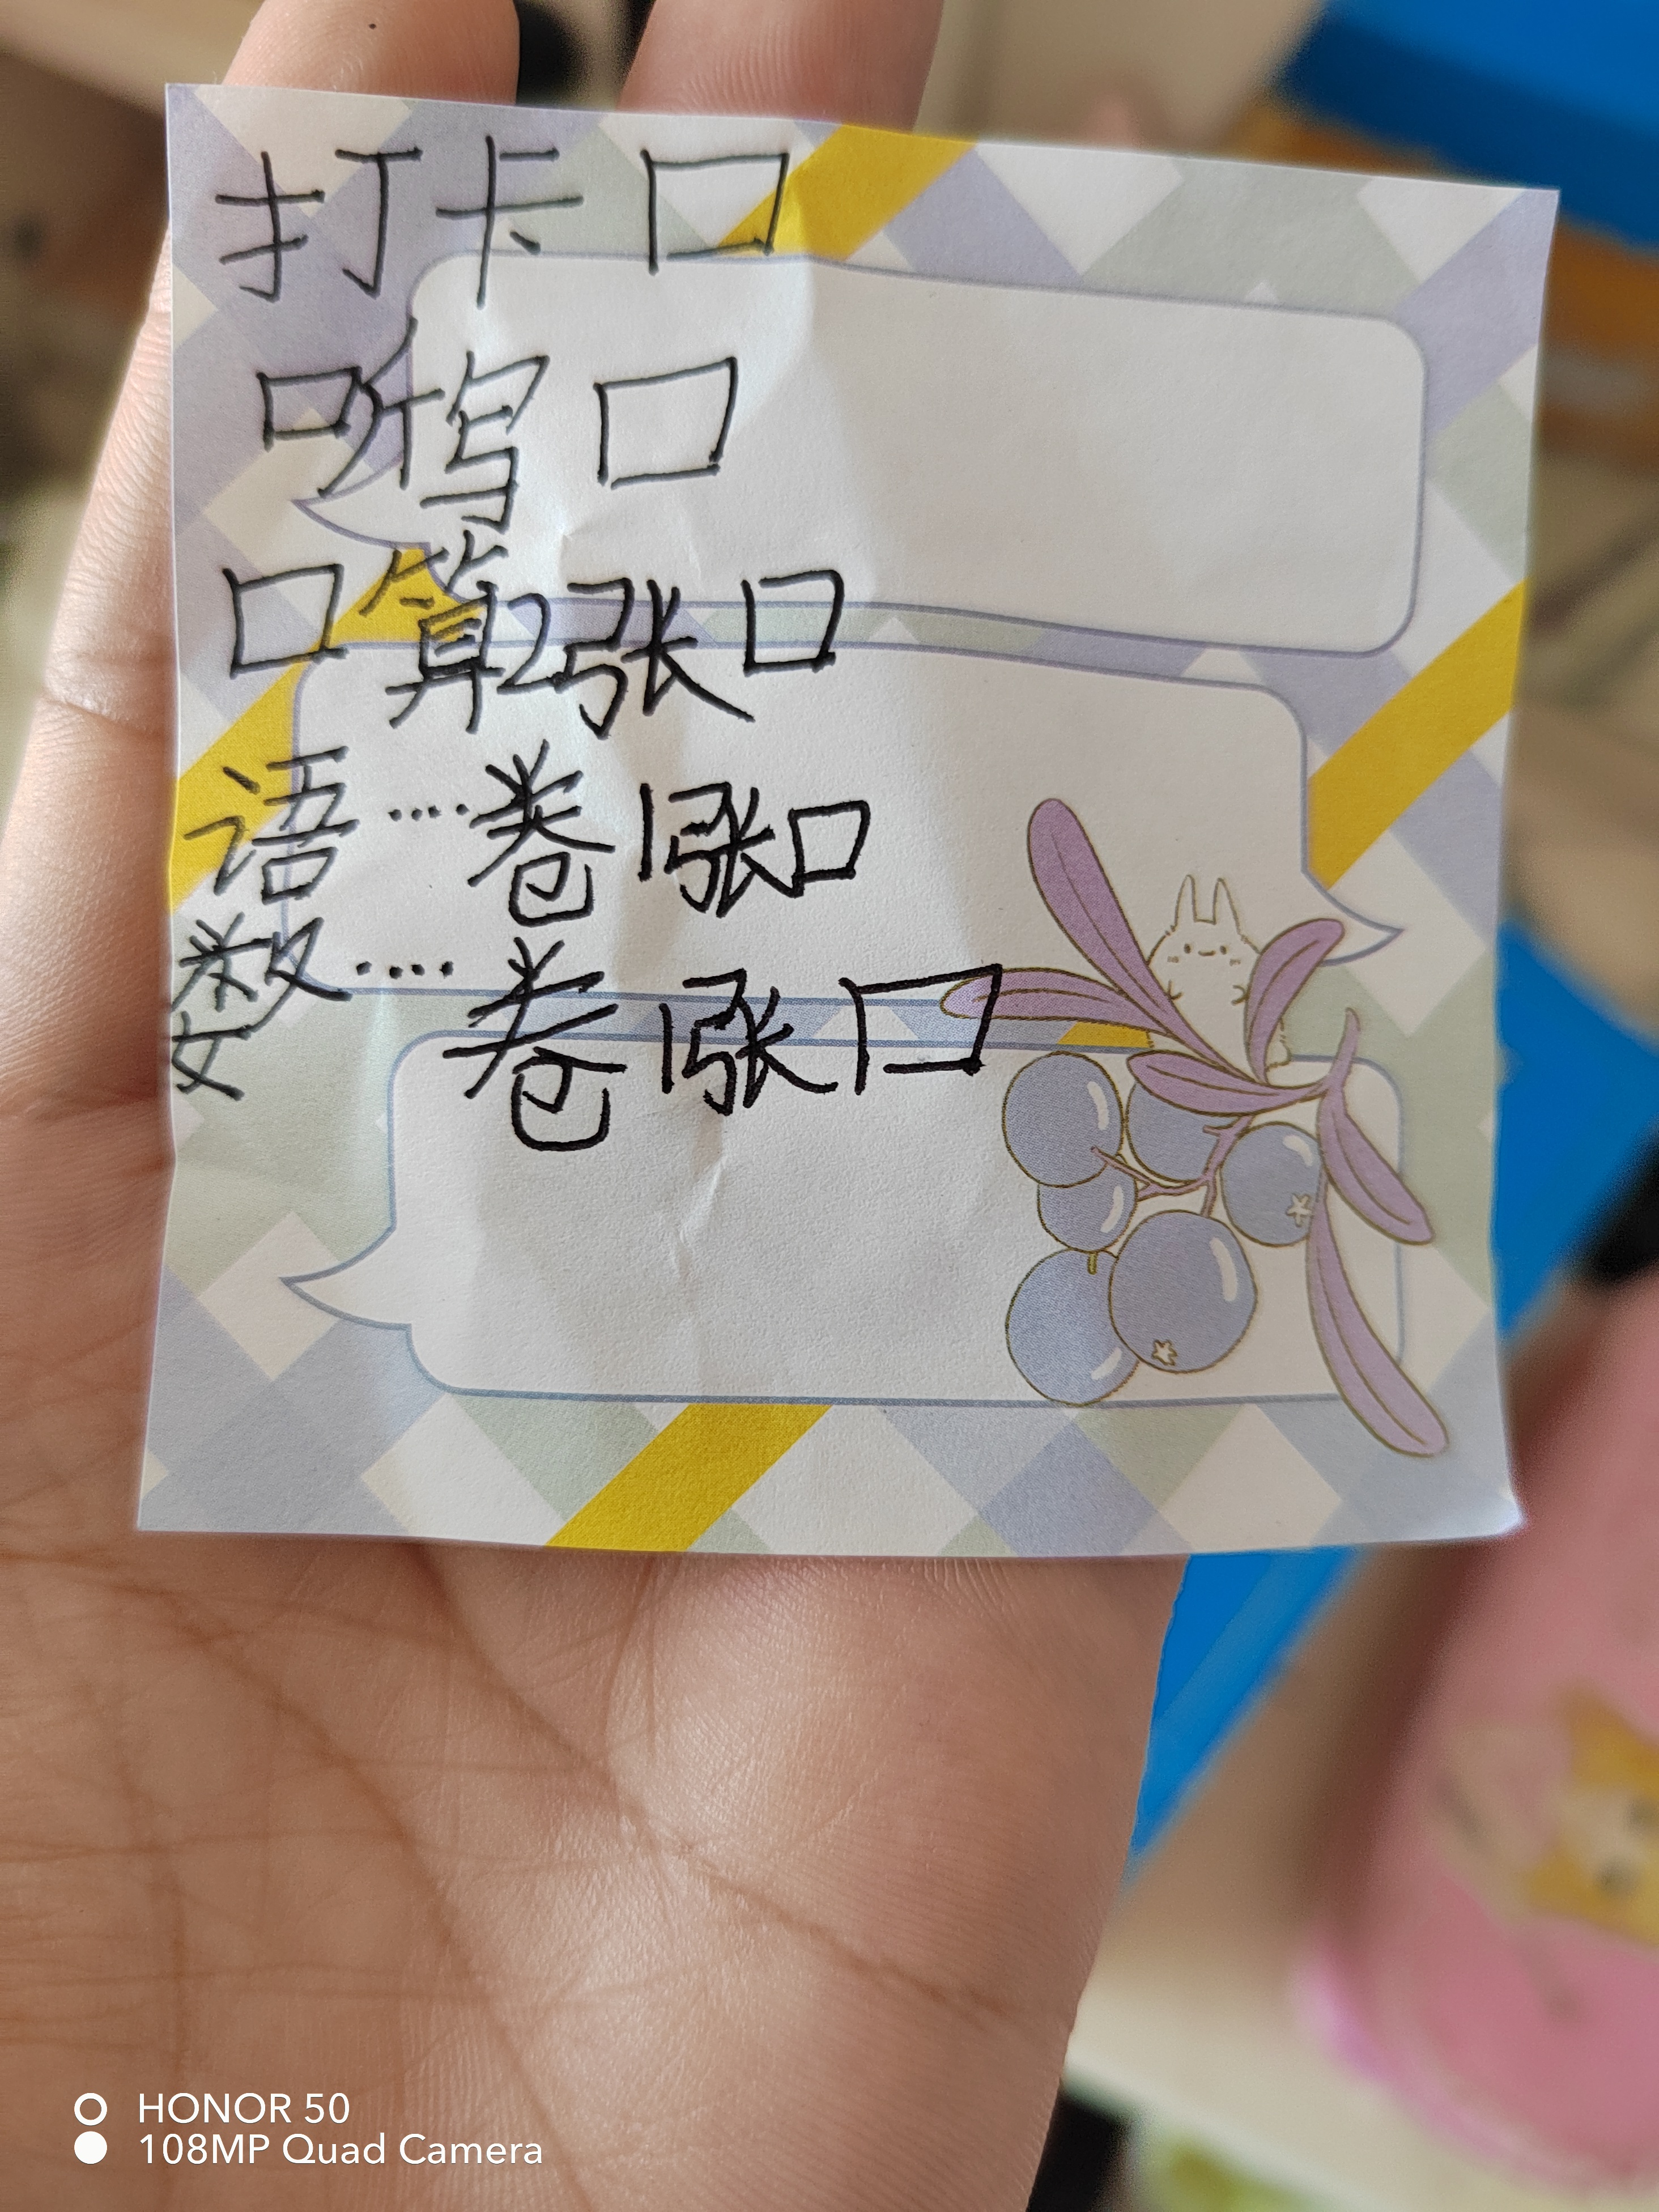 打卡 □
听写 □
口算2张 □
语····卷1张 □
数····卷1张 □
HONOR 50
108MP Quad Camera